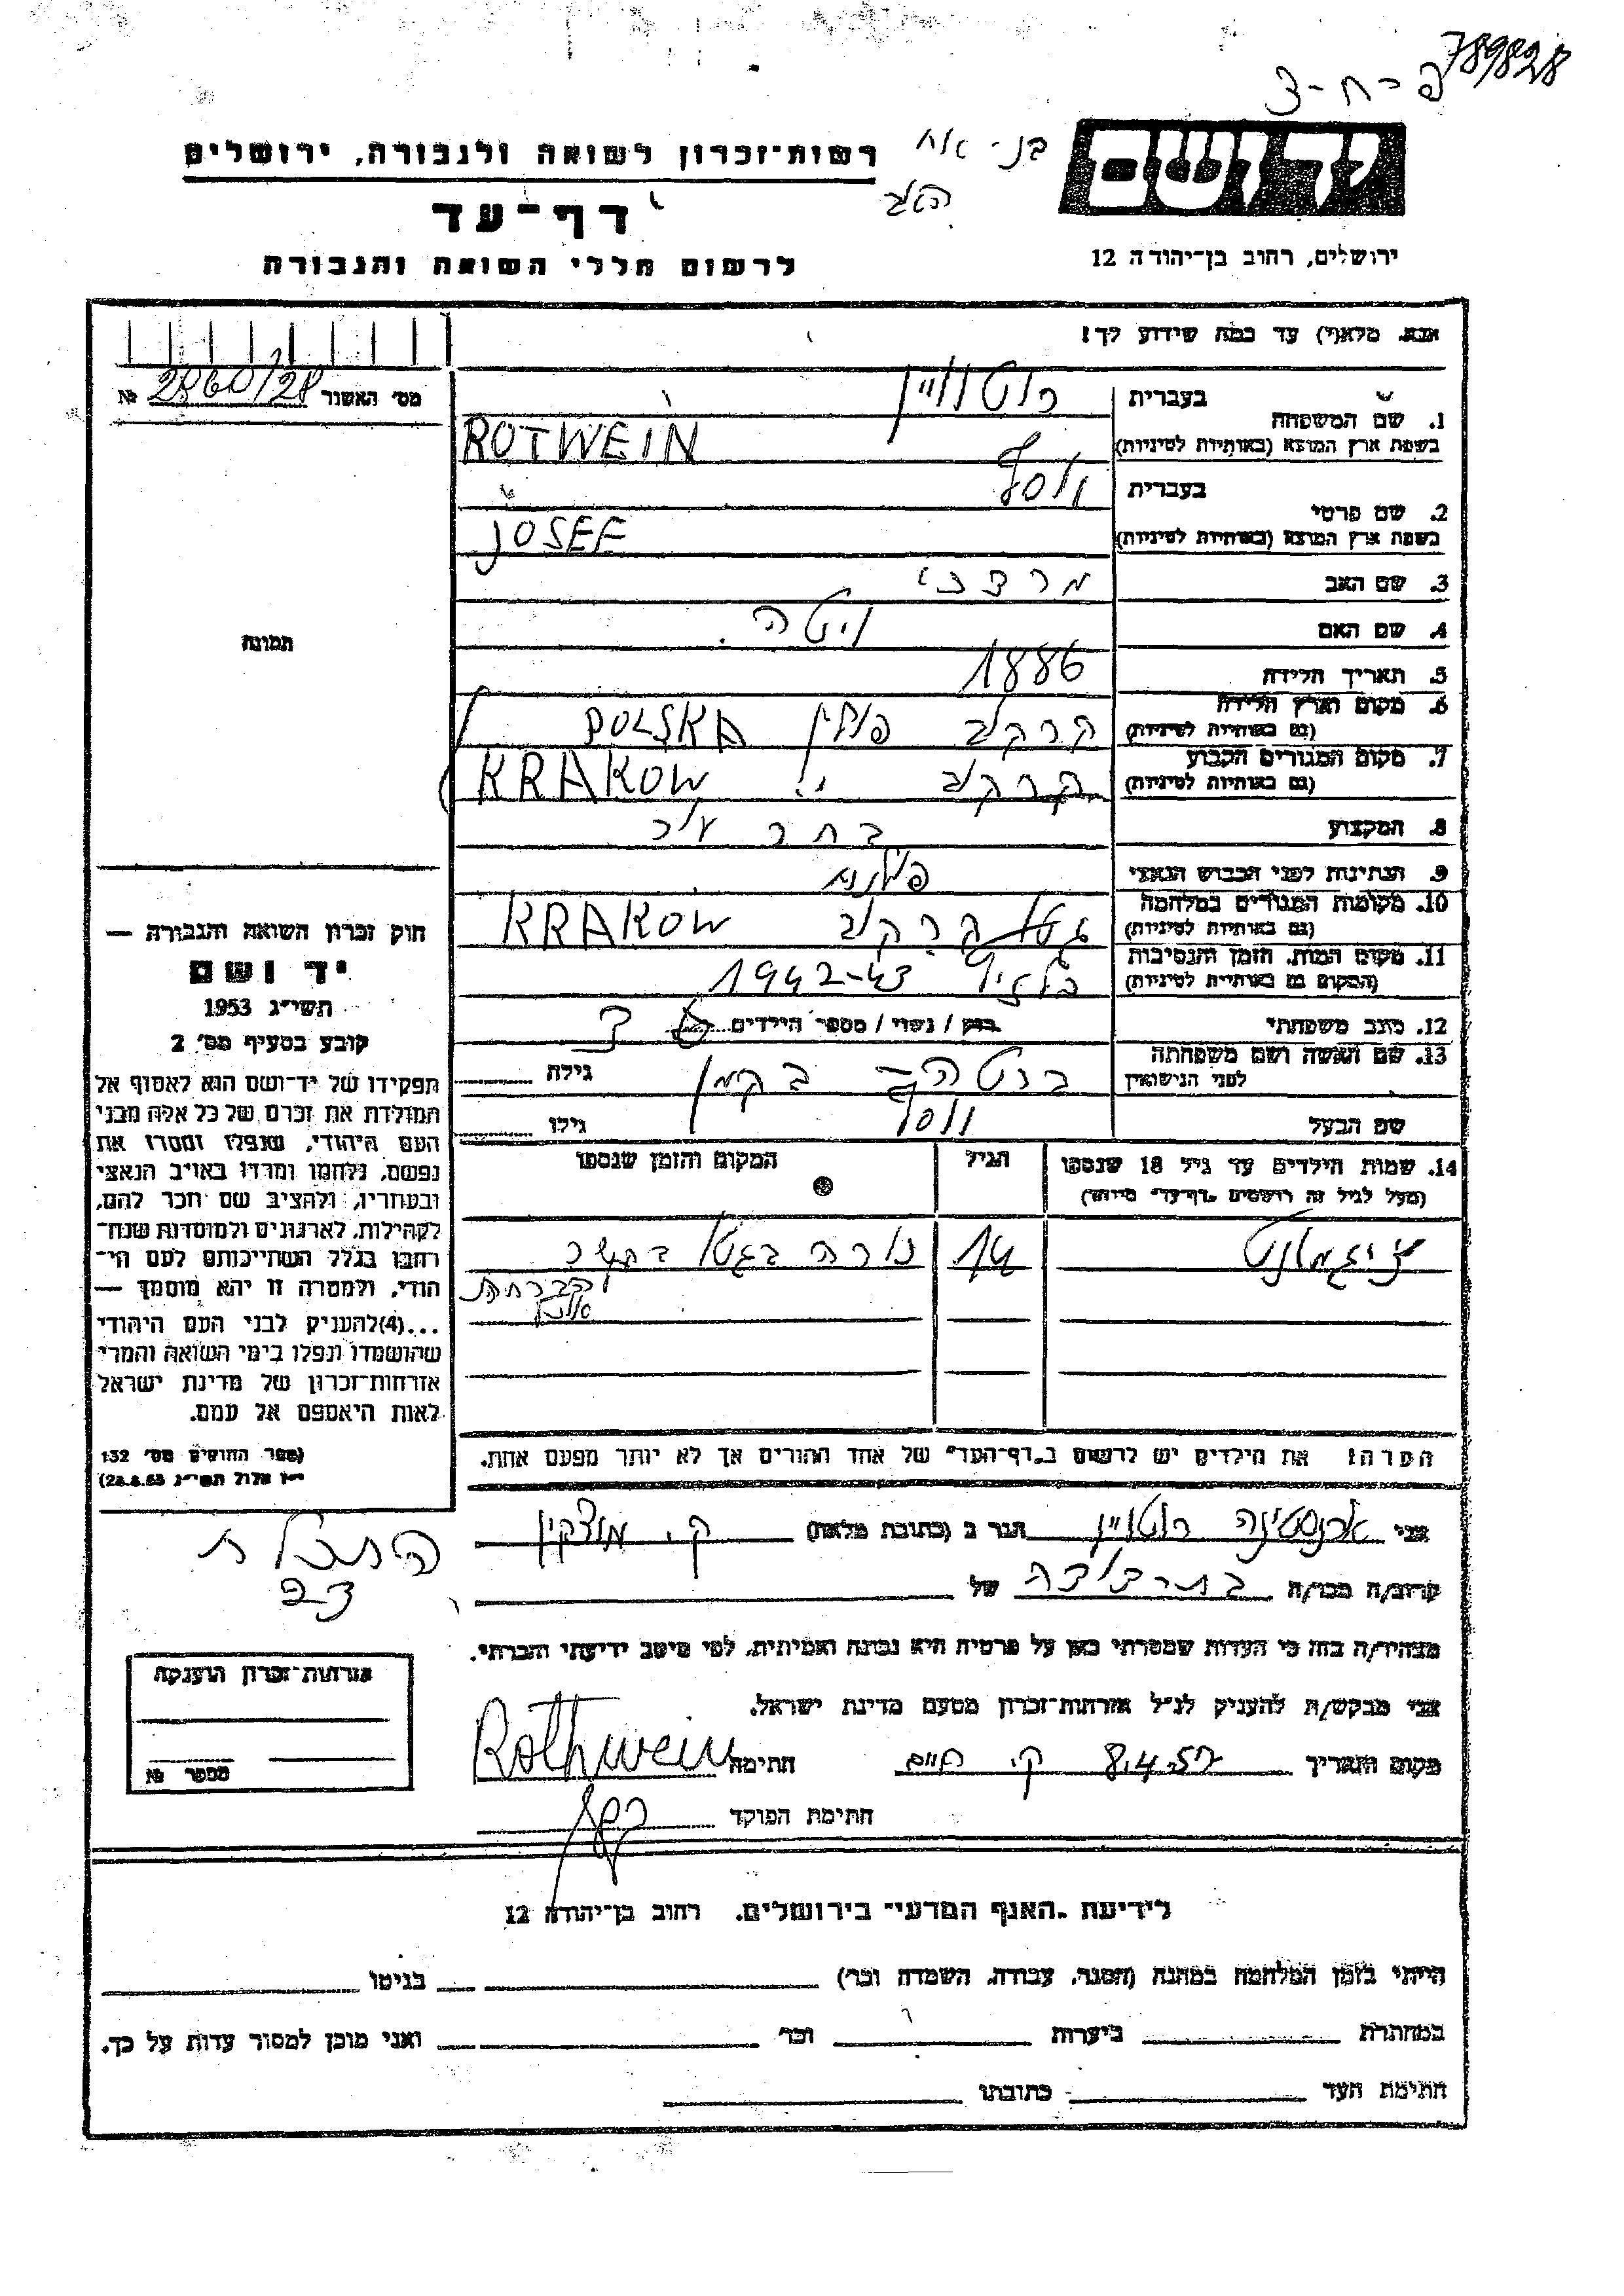 789828
פ-ח-3
ידושם
רשות־זכרון לשואה ולגבורה, ירושלים
דף־עד
לרשום חללי השואה והגבורה
ירושלים, רחוב בן־יהודה 12
אנא, מלא(י) עד כמה שידוע לך!
מס׳ האשור 2860/28 №
1. שם המשפחה
בעברית רוטוויין
בשפת ארץ המוצא (באותיות לטיניות) ROTWEIN
2. שם פרטי
בעברית יוסף
בשפת ארץ המוצא (באותיות לטיניות) JOSEF
3. שם האב מרדכי
4. שם האם יטה
5. תאריך הלידה 1886
6. מקום וארץ הלידה
(גם באותיות לטיניות) קרקוב פולין POLSKA
7. מקום המגורים הקבוע
(גם באותיות לטיניות) קרקוב KRAKOW
8. המקצוע
9. הנתינות לפני הכבוש הנאצי פולנית
10. מקומות המגורים במלחמה
(גם באותיות לטיניות) גטו קרקוב KRAKOW
11. מקום המות, הזמן והנסיבות
(המקום גם באותיות לטיניות) 1942-43
12. מצב משפחתי רווק / נשוי / מספר הילדים 3
13. שם האשה ושם משפחתה
לפני הנישואין ברטה בקמן גילה
שם הבעל יוסף גילו
14. שמות הילדים עד גיל 18 שנספו
(מעל לגיל זה רושמים ״דף־עד״ מיוחד)
הגיל
המקום והזמן שנספו
זיגמונט 14 נורה בגטו
הערה: את הילדים יש לרשום ב״דף־העד״ של אחד ההורים אך לא יותר מפעם אחת.
תמונה
חוק זכרון השואה והגבורה —
יד ושם
תשי״ג 1953
קובע בסעיף מס׳ 2
תפקידו של יד־ושם הוא לאסוף אל
המולדת את זכרם של כל אלה מבני
העם היהודי, שנפלו ומסרו את
נפשם, נלחמו ומרדו באויב הנאצי
ובעוזריו, ולהציב שם וזכר להם,
לקהילות, לארגונים ולמוסדות שנח־
רבו בגלל השתייכותם לעם הי־
הודי, ולמטרה זו יהא מוסמך —
...(4) להעניק לבני העם היהודי
שהושמדו ונפלו בימי השואה והמרי
אזרחות־זכרון של מדינת ישראל
לאות היאספם אל עמם.
(ספר החוקים מס׳ 132
י״ז אלול תשי״ג 28.8.53)
אני ארנסטינה רוטויין הגר ב (כתובת מלאה) ק. מוצקין
קרוב/ה מכר/ה בת דודה של
מצהיר/ה בזה כי העדות שמסרתי כאן על פרטיה היא נכונה ואמיתית, לפי מיטב ידיעתי והכרתי.
אני מבקש/ת להעניק לנ״ל אזרחות־זכרון מטעם מדינת ישראל.
מקום ותאריך 8.4.57 ק. חיים חתימה Rothwein
חתימת הפוקד
אזרחות־זכרון הוענקה
מספר №
לידיעת ״האגף המדעי״ בירושלים, רחוב בן־יהודה 12
הייתי בזמן המלחמה במחנה (הסגר, עבודה, השמדה וכו׳) בגיטו
במחתרת ביערות וכו׳ ואני מוכן למסור עדות על כך.
חתימת העד כתובתו